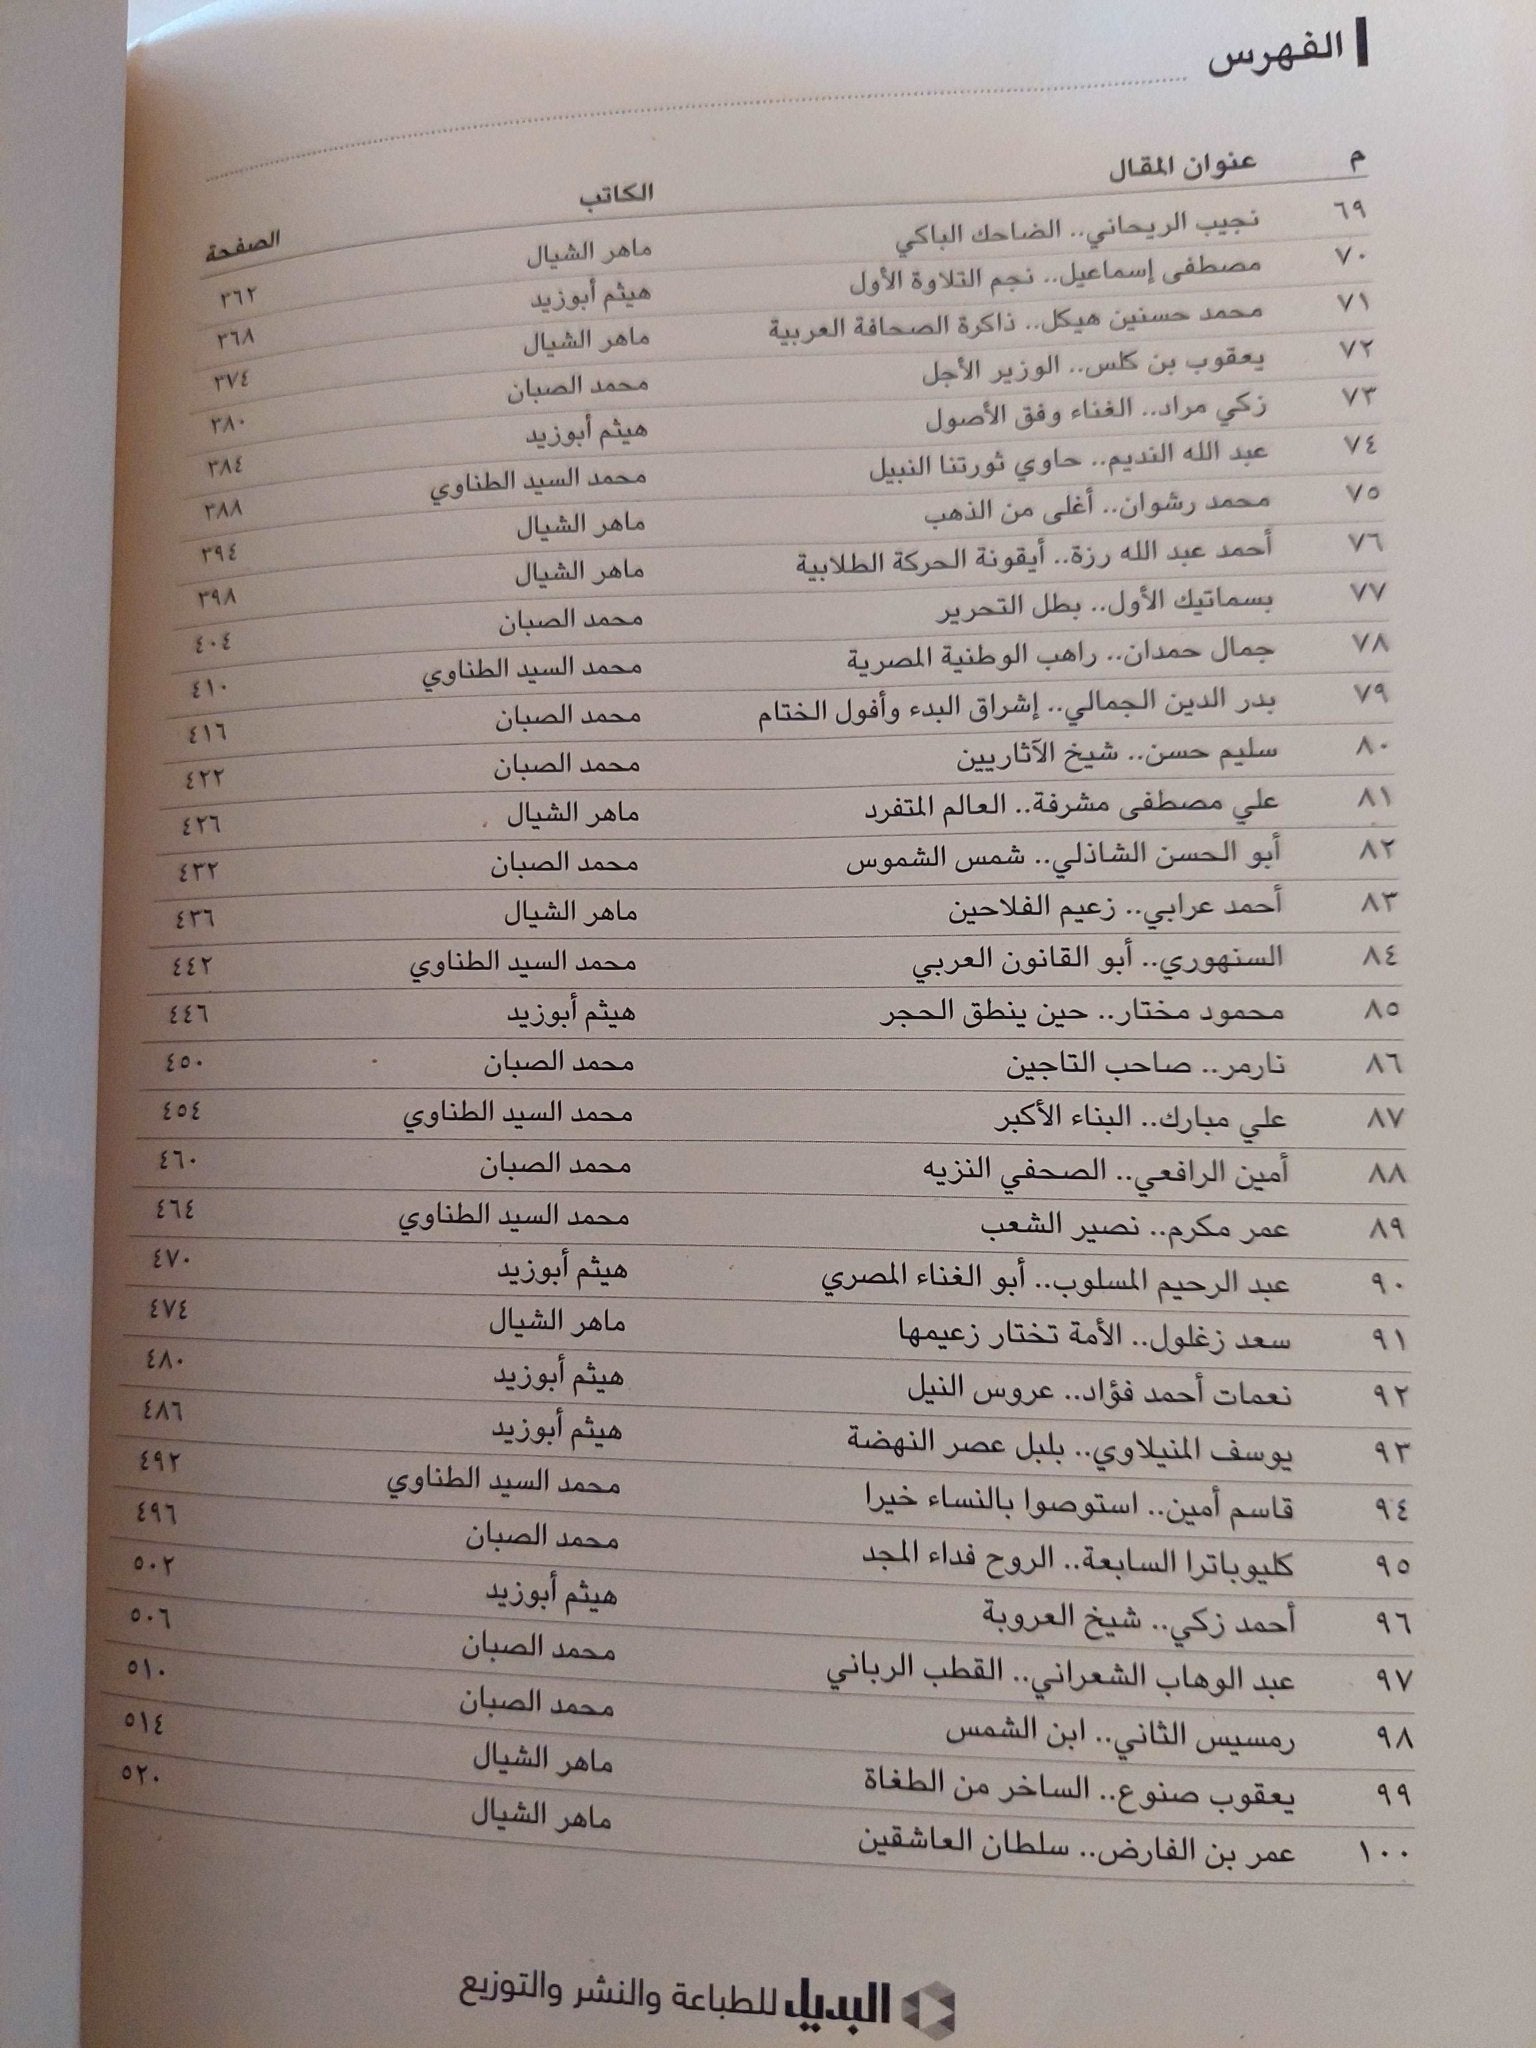 الفهرس
م عنوان المقال الكاتب الصفحة
٦٩ نجيب الريحاني.. الضاحك الباكي ماهر الشيال ٣٦٢
٧٠ مصطفى إسماعيل.. نجم التلاوة الأول هيثم أبوزيد ٣٦٨
٧١ محمد حسنين هيكل.. ذاكرة الصحافة العربية ماهر الشيال ٣٧٤
٧٢ يعقوب بن كلس.. الوزير الأجل محمد الصبان ٣٨٠
٧٣ زكي مراد.. الغناء وفق الأصول هيثم أبوزيد ٣٨٤
٧٤ عبد الله النديم.. حاوي ثورتنا النبيل محمد السيد الطناوي ٣٨٨
٧٥ محمد رشوان.. أغلى من الذهب ماهر الشيال ٣٩٤
٧٦ أحمد عبد الله رزة.. أيقونة الحركة الطلابية ماهر الشيال ٣٩٨
٧٧ بسماتيك الأول.. بطل التحرير محمد الصبان ٤٠٤
٧٨ جمال حمدان.. راهب الوطنية المصرية محمد السيد الطناوي ٤١٠
٧٩ بدر الدين الجمالي.. إشراق البدء وأفول الختام محمد الصبان ٤١٦
٨٠ سليم حسن.. شيخ الآثاريين محمد الصبان ٤٢٢
٨١ علي مصطفى مشرفة.. العالم المتفرد ماهر الشيال ٤٢٦
٨٢ أبو الحسن الشاذلي.. شمس الشموس محمد الصبان ٤٣٢
٨٣ أحمد عرابي.. زعيم الفلاحين ماهر الشيال ٤٣٦
٨٤ السنهوري.. أبو القانون العربي محمد السيد الطناوي ٤٤٢
٨٥ محمود مختار.. حين ينطق الحجر هيثم أبوزيد ٤٤٦
٨٦ نارمر.. صاحب التاجين محمد الصبان ٤٥٠
٨٧ علي مبارك.. البناء الأكبر محمد السيد الطناوي ٤٥٤
٨٨ أمين الرافعي.. الصحفي النزيه محمد الصبان ٤٦٠
٨٩ عمر مكرم.. نصير الشعب محمد السيد الطناوي ٤٦٤
٩٠ عبد الرحيم المسلوب.. أبو الغناء المصري هيثم أبوزيد ٤٧٠
٩١ سعد زغلول.. الأمة تختار زعيمها ماهر الشيال ٤٧٤
٩٢ نعمات أحمد فؤاد.. عروس النيل هيثم أبوزيد ٤٨٠
٩٣ يوسف المنيلاوي.. بلبل عصر النهضة هيثم أبوزيد ٤٨٦
٩٤ قاسم أمين.. استوصوا بالنساء خيرا محمد السيد الطناوي ٤٩٢
٩٥ كليوباترا السابعة.. الروح فداء المجد محمد الصبان ٤٩٦
٩٦ أحمد زكي.. شيخ العروبة هيثم أبوزيد ٥٠٢
٩٧ عبد الوهاب الشعراني.. القطب الرباني محمد الصبان ٥٠٦
٩٨ رمسيس الثاني.. ابن الشمس محمد الصبان ٥١٠
٩٩ يعقوب صنوع.. الساخر من الطغاة ماهر الشيال ٥١٤
١٠٠ عمر بن الفارض.. سلطان العاشقين ماهر الشيال ٥٢٠
البديل للطباعة والنشر والتوزيع